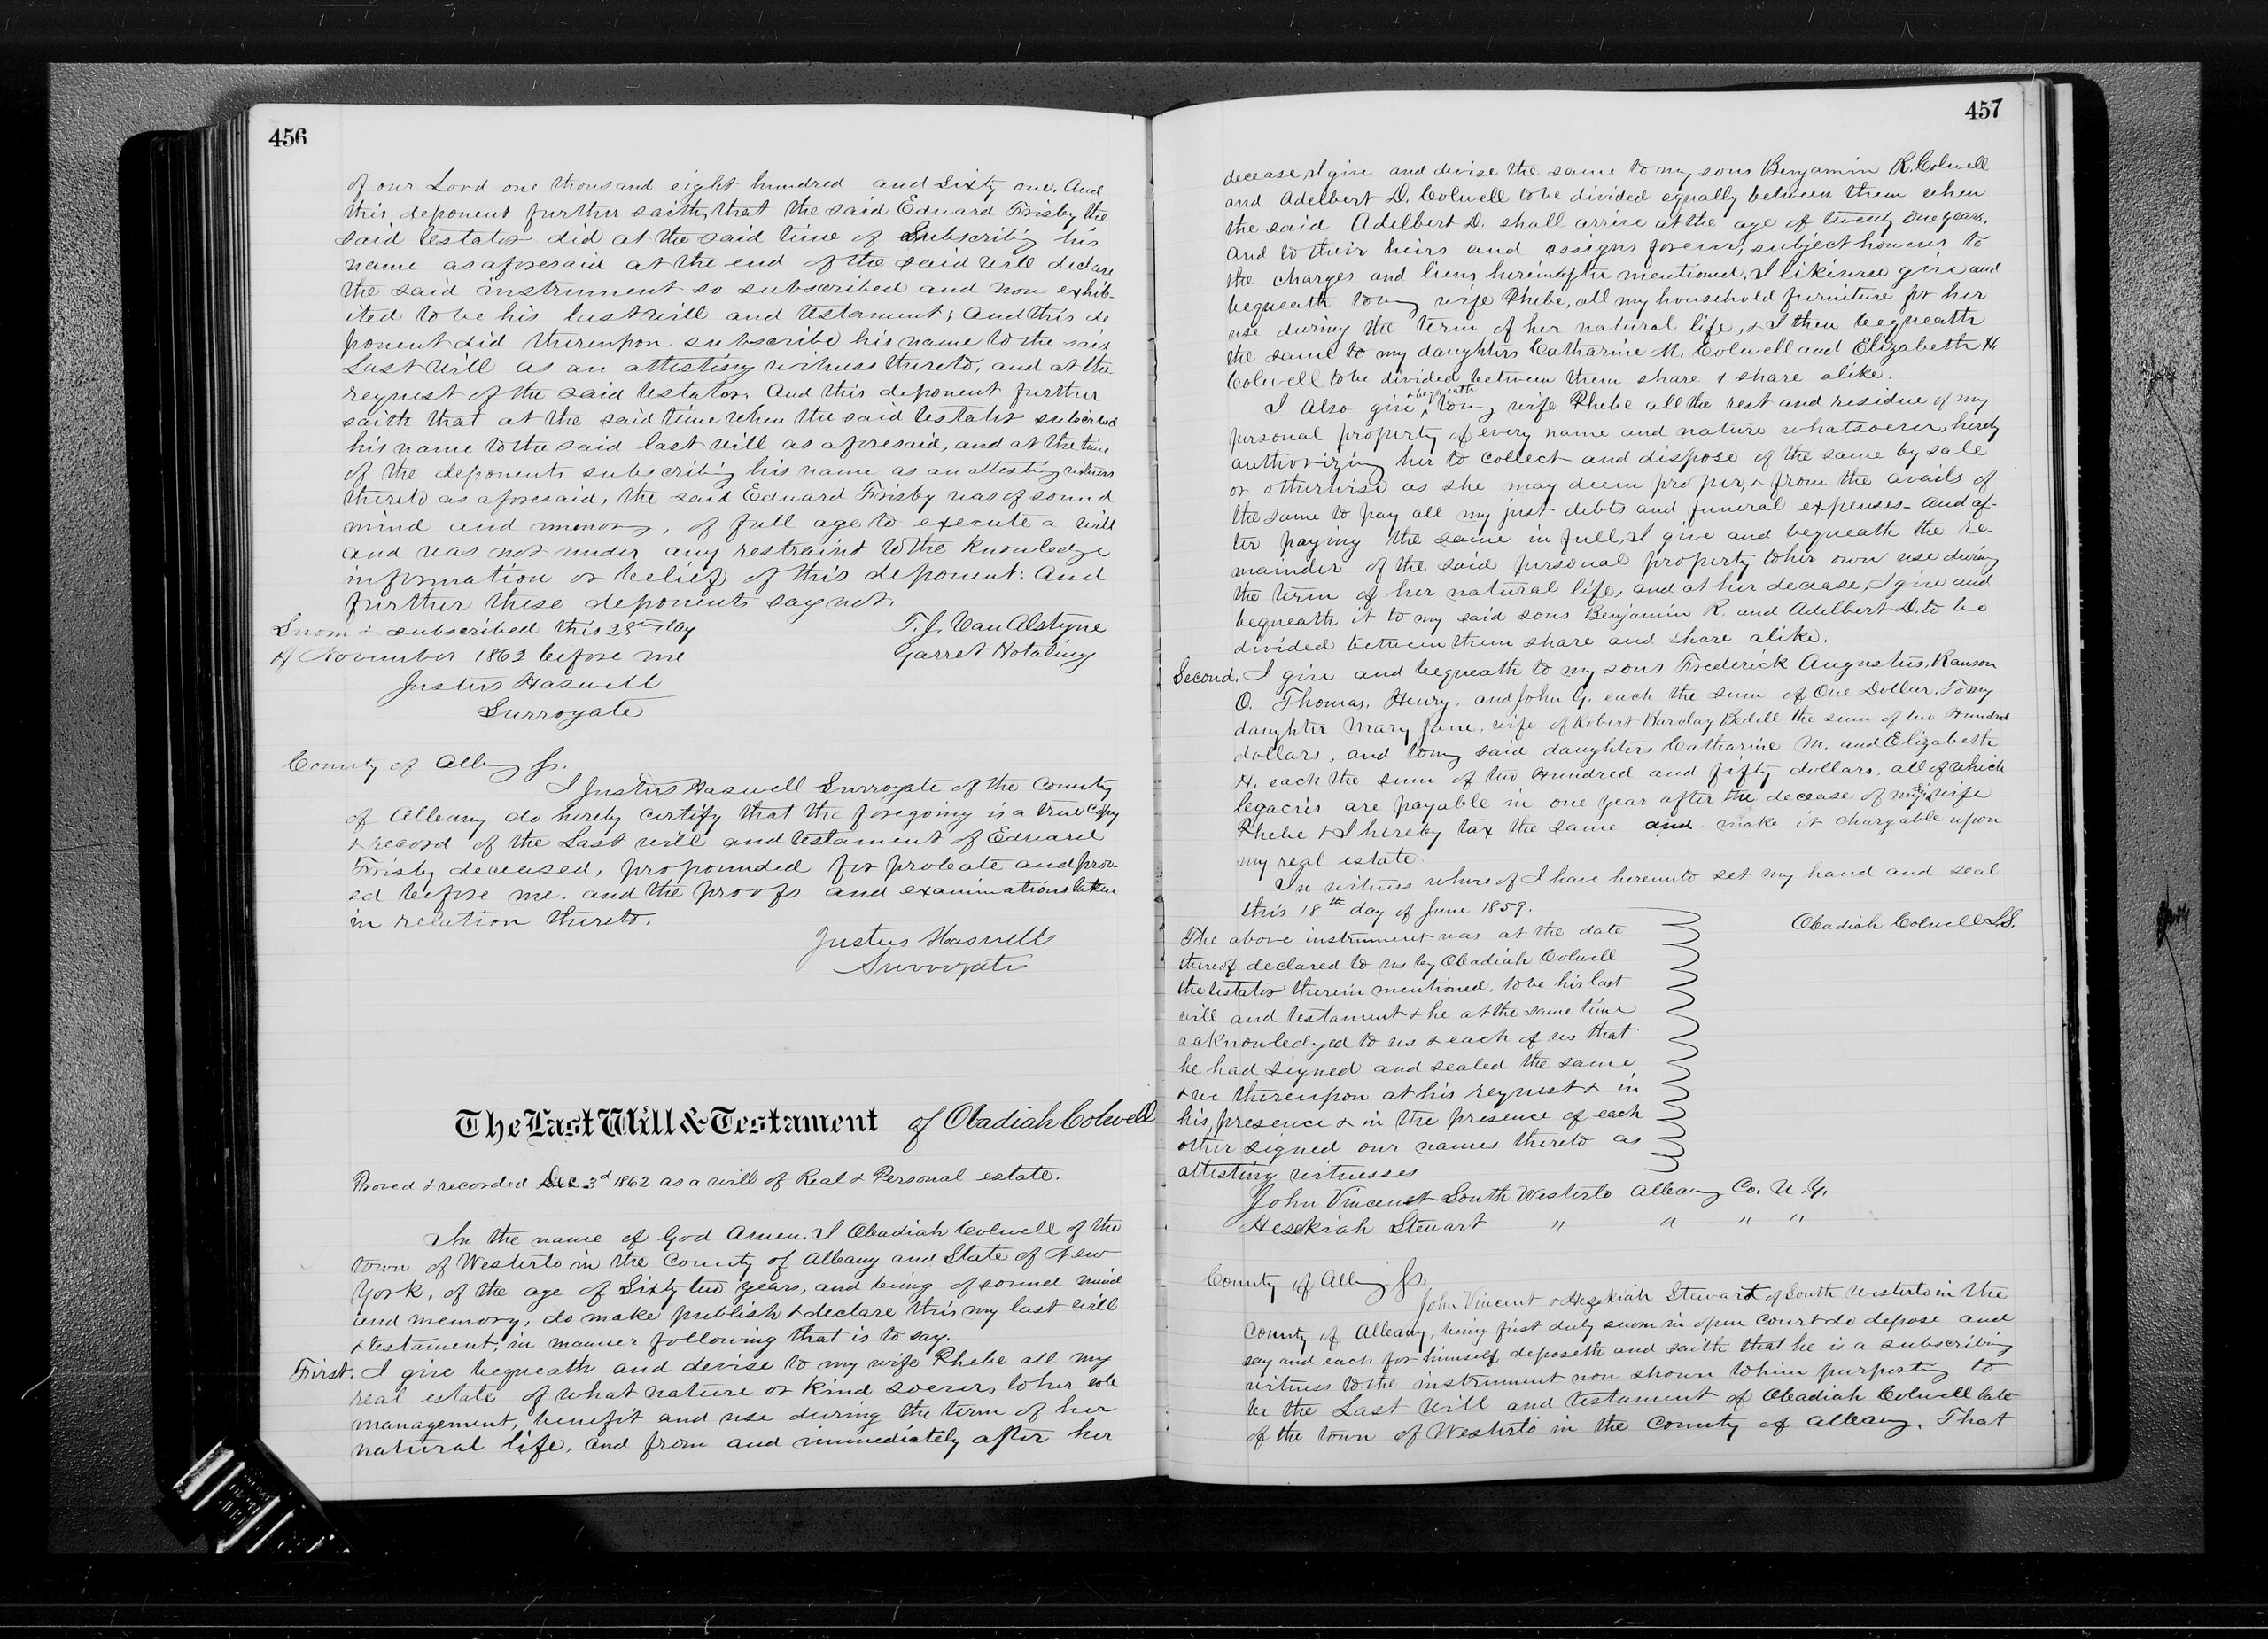 456
of our Lord one thousand eight hundred and Sixty one. And
this deponent further saith, that the said Edward Frisby the
said testator did at the said time of Subscribing his
name as aforesaid at the end of the said will declare
the said instrument so subscribed and now exhib-
ited to be his last will and testament; And this de
ponent did thereupon subscribe his name to the said
Last Will as an attesting witness thereto, and at the
request of the said testator. And this deponent further
saith that at the said time when the said testator subscribed
his name to the said last will as aforesaid, and at the time
of the deponents subscribing his name as an attesting witness
thereto as aforesaid, the said Edward Frisby was of sound
mind and memory, of full age to execute a will
and was not under any restraint to the knowledge
information or belief of this deponent. And
further these deponents say not.
Sworn & subscribed this 28th day
of November 1862 before me
Justus Haswell
Surrogate
T. J. Van Alstyne
Garret Hotaling
County of Albany Ss.
I Justus Haswell Surrogate of the County
of Albany do hereby certify that the foregoing is a true Copy
& record of the Last will and testament of Edward
Frisby deceased, propounded for probate and prov-
ed before me. and the proofs and examinations taken
in relation thereto.
Justus Haswell
Surrogate
The Last Will & Testament of Obadiah Colwell
Proved & recorded Dec 3d 1862 as a will of Real & Personal estate.
In the name of God Amen. I Obadiah Colwell of the
town of Westerlo in the County of Albany and State of New
York, of the age of Sixty two years, and being of sound mind
and memory, do make publish & declare this my last will
& testament, in manner following that is to say.
First. I give bequeath and devise to my wife Phebe all my
real estate of what nature or kind soever, to her sole
management, benefit and use during the term of her
natural life, and from and immediately after her
457
decease, I give and devise the same to my sons Benjamin R. Colwell
and Adelbert D. Colwell to be divided equally between them when
the said Adelbert D. shall arrive at the age of twenty one years.
and to their heirs and assigns forever, subject however to
the charges and liens hereinafter mentioned. I likewise give and
bequeath to my wife Phebe, all my household furniture for her
use during the term of her natural life, & I then bequeath
the same to my daughters Catharine M. Colwell and Elizabeth H.
Colwell to be divided between them share & share alike.
I Also give & bequeath to my wife Phebe all the rest and residue of my
personal property of every name and nature whatsoever, hereby
authorizing her to collect and dispose of the same by sale
or otherwise as she may deem proper, & from the avails of
the same to pay all my just debts and funeral expenses - and af-
ter paying the same in full, I give and bequeath the re-
mainder of the said personal property to her own use during
the term of her natural life, and at her decease, I give and
bequeath it to my said sons Benjamin R. and Adelbert D. to be
divided between them share and share alike.
Second. I give and bequeath to my sons Frederick Augustus, Ranson
O. Thomas, Henry, and John G. each the sum of One Dollar. To my
daughter Mary Jane, wife of Robert Barclay Bedell the sum of two Hundred
dollars, and to my said daughters Catharine M. and Elizabeth
H. each the sum of two Hundred and fifty dollars, all of which
legacies are payable in one year after the decease of my sd wife
Phebe & I hereby tax the same and make it chargable upon
my real estate.
In witness whereof I have hereunto set my hand and seal
this 18th day of June 1859.
Obadiah Colwell L.S.
The above instrument was at the date
thereof declared to us by Obadiah Colwell
the testator therein mentioned, to be his last
will and testament & he at the same time
acknowledged to us & each of us that
he had signed and sealed the same
& we thereupon at his request & in
his presence & in the presence of each
other signed our names thereto as
attesting witnesses
John Vincent South Westerlo Albany Co. N.Y.
Hezekiah Stewart " " " "
County of Albany Ss.
John Vincent & Hezekiah Stewart of South Westerlo in the
County of Albany, being first duly sworn in open Court do depose and
say and each for himself deposeth and saith that he is a subscribing
witness to the instrument now shown to him purporting to
be the Last Will and testament of Obadiah Colwell late
of the town of Westerlo in the County of Albany. That